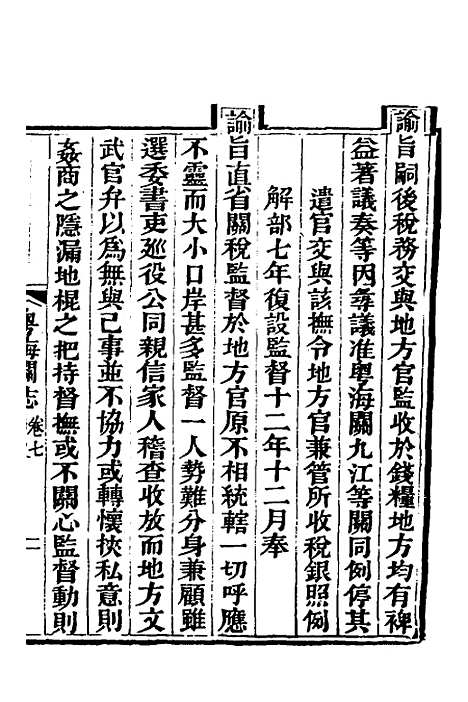 諭旨嗣後稅務交與地方官監收於錢糧地方均有裨
益著議奏等因尋議准粵海關九江等關同例停其
遣官交與該撫令地方官兼管所收稅銀照例
解部七年復設監督十二年十二月奉
諭旨直省關稅監督於地方官原不相統轄一切呼應
不靈而大小口岸甚多監督一人勢難分身兼顧雖
選委書吏廵役公同親信家人稽查收放而地方文
武官弁以為無與己事並不協力或轉懷挾私意則
姦商之隱漏地棍之把持督撫或不關心監督動則
粵海關志 卷七 二